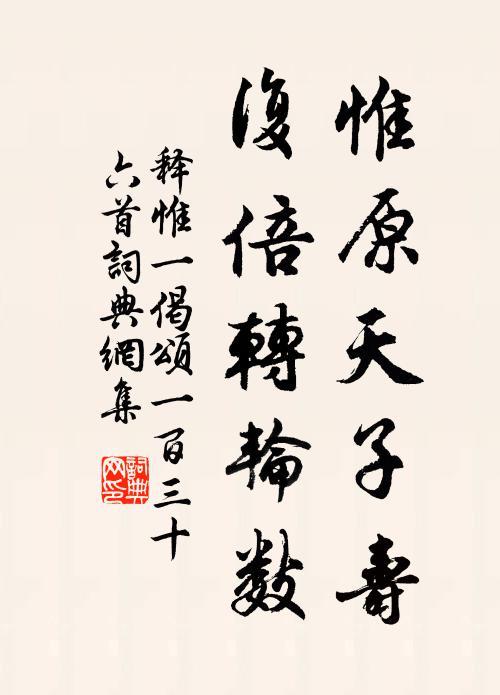 惟原天子壽
復倍轉輪數
释惟一偈頌一百三十
六首詞典網集
詞典网印